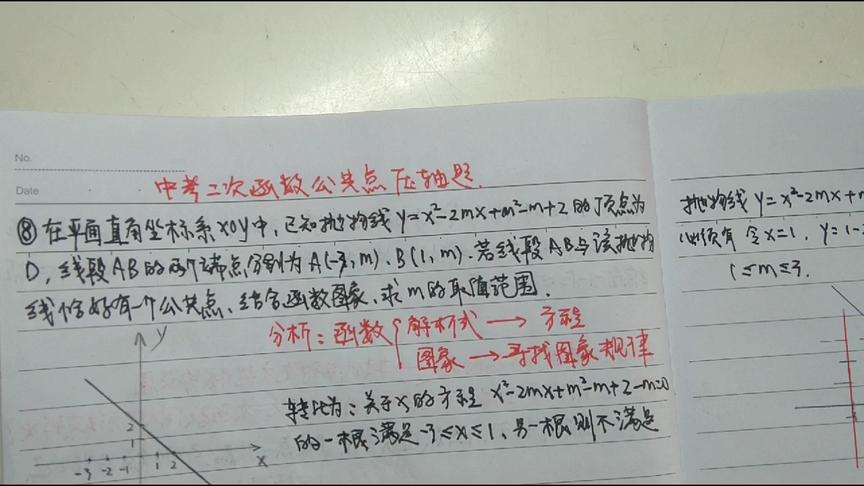 No.
Date
中考二次函数公共点压轴题.
⑧在平面直角坐标系xoy中,已知抛物线 y=x²-2mx+m²-m+2 的顶点为
D,线段AB的两个端点分别为A(-3,m).B(1,m).若线段AB与该抛物
线恰好有一个公共点、结合函数图象、求m的取值范围.
分析:函数 { 解析式 → 方程
图象 → 寻找图象规律
转化为:关于x的方程 x²-2mx+m²-m+2-m=0
的一根满足-3≤x≤1、另一根则不满足
y
2
1
-3 -2 -1 1 2
x
抛物线 y=x²-2mx+
必须有 令x=1, y=1-
1≤m≤3.